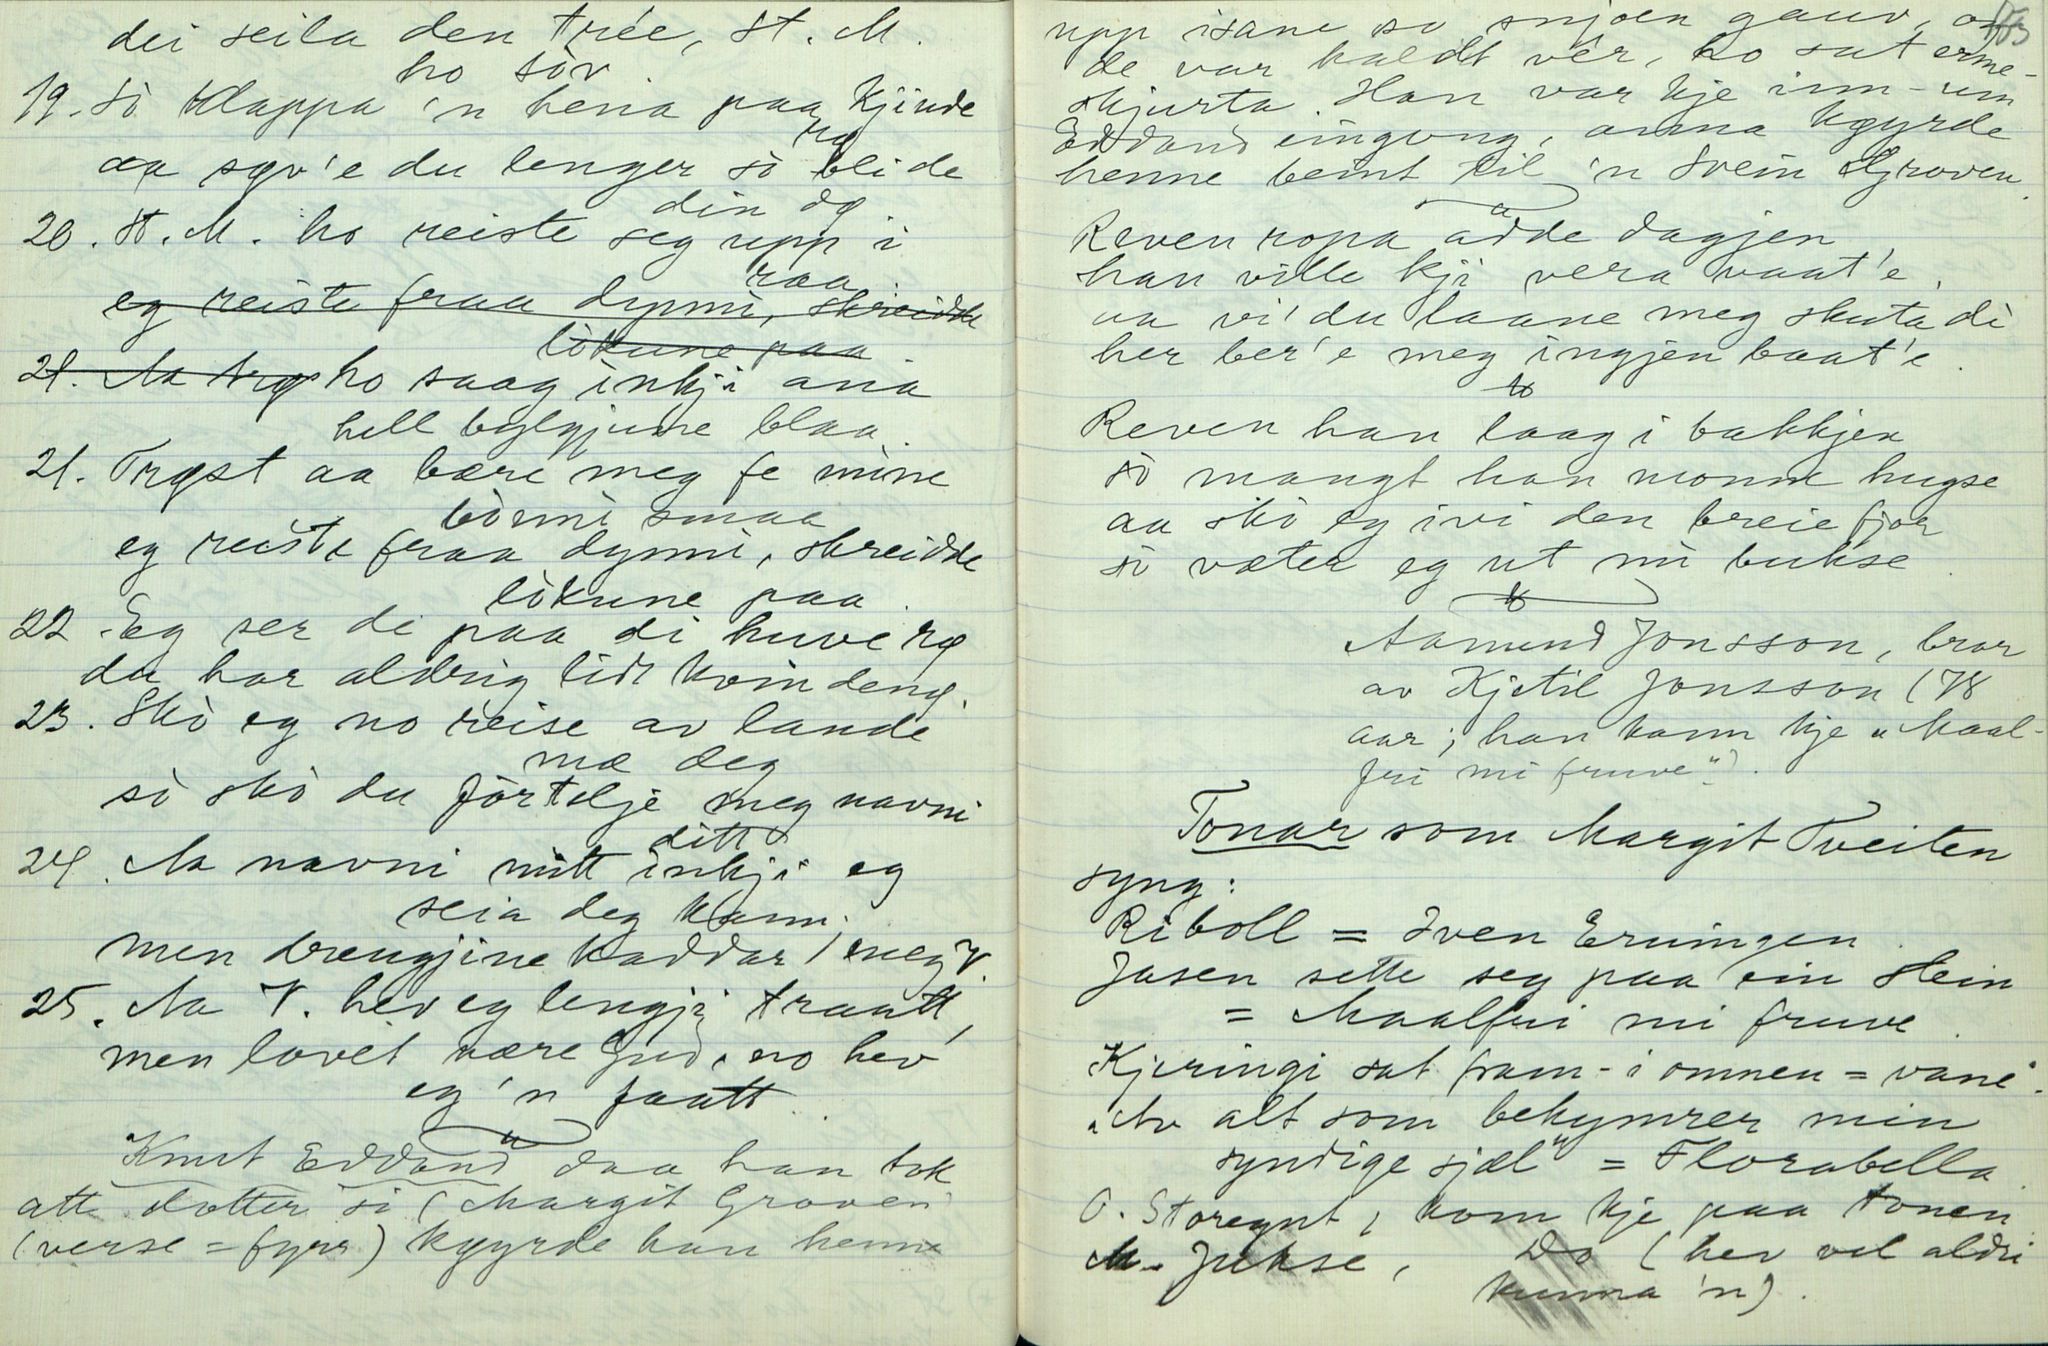 dei seila den trée, St. M.
ho söv.
19. Sò klappa 'n hena paa kjinde
rø
aa søv'e du lenger sò bli de
din dø
20. St. M. ho reiste seg upp i
raa
eg reiste fraa dynni, skreidde
lòkune paa.
21. Aa trø ho saag inkji ana
hell bylgjune blaa.
21. Trøst aa bære meg fe mine
bònni smaa
eg reiste fraa dynni, skreidde
lòkune paa.
22. Eg ser de paa di huve rø
du har aldrig lidt kvindenø.
23. Skò eg no reise av lande
mæ deg
sò skò du förtelje meg navni
ditt
24. Aa navni mitt inkji eg
seia deg kann,
men drengjine kaddar meg V.
25. Aa V. hev eg lengji traatt,
men lovet være Gud, no hev
eg 'n faatt.
Knut Eddand daa han tok
att dotter si (Margit Groven
(verse = fyrr) køyrde han henne
upp isane so snjoen gauv, og
de var kaldt vér, ho sat erme-
skjurta. Han var kje inn-um
Eddand eingong, anna køyrde
henne beint til 'n Svein Groven.
Reven ropa adde dagjen
han ville kji vera vaat'e,
aa vi' du laane meg skuta di
her ber'e meg ingjen baat'e.
Reven han laag i bakkjen
sò mangt han monne hugse
aa skò eg ivi den breie fjor
sò væter eg ut mi bukse.
Aamund Jonsson, bror
av Kjetil Jonsson (78
aar; han kann kje „Maal-
fri mi fruve").
Tonar som Margit Tveiten
syng:
Riboll = Iven Erningen.
Jasen sette seg paa ein stein
= Maalfri mi fruve.
Kjeringi sat fram-i omnen = vane.
„Av alt som bekymrer min
syndige sjæl" = Florabella
O. Storegut, kom kje paa tonen
M. Jukse, Do (hev vel aldri
kunna 'n).